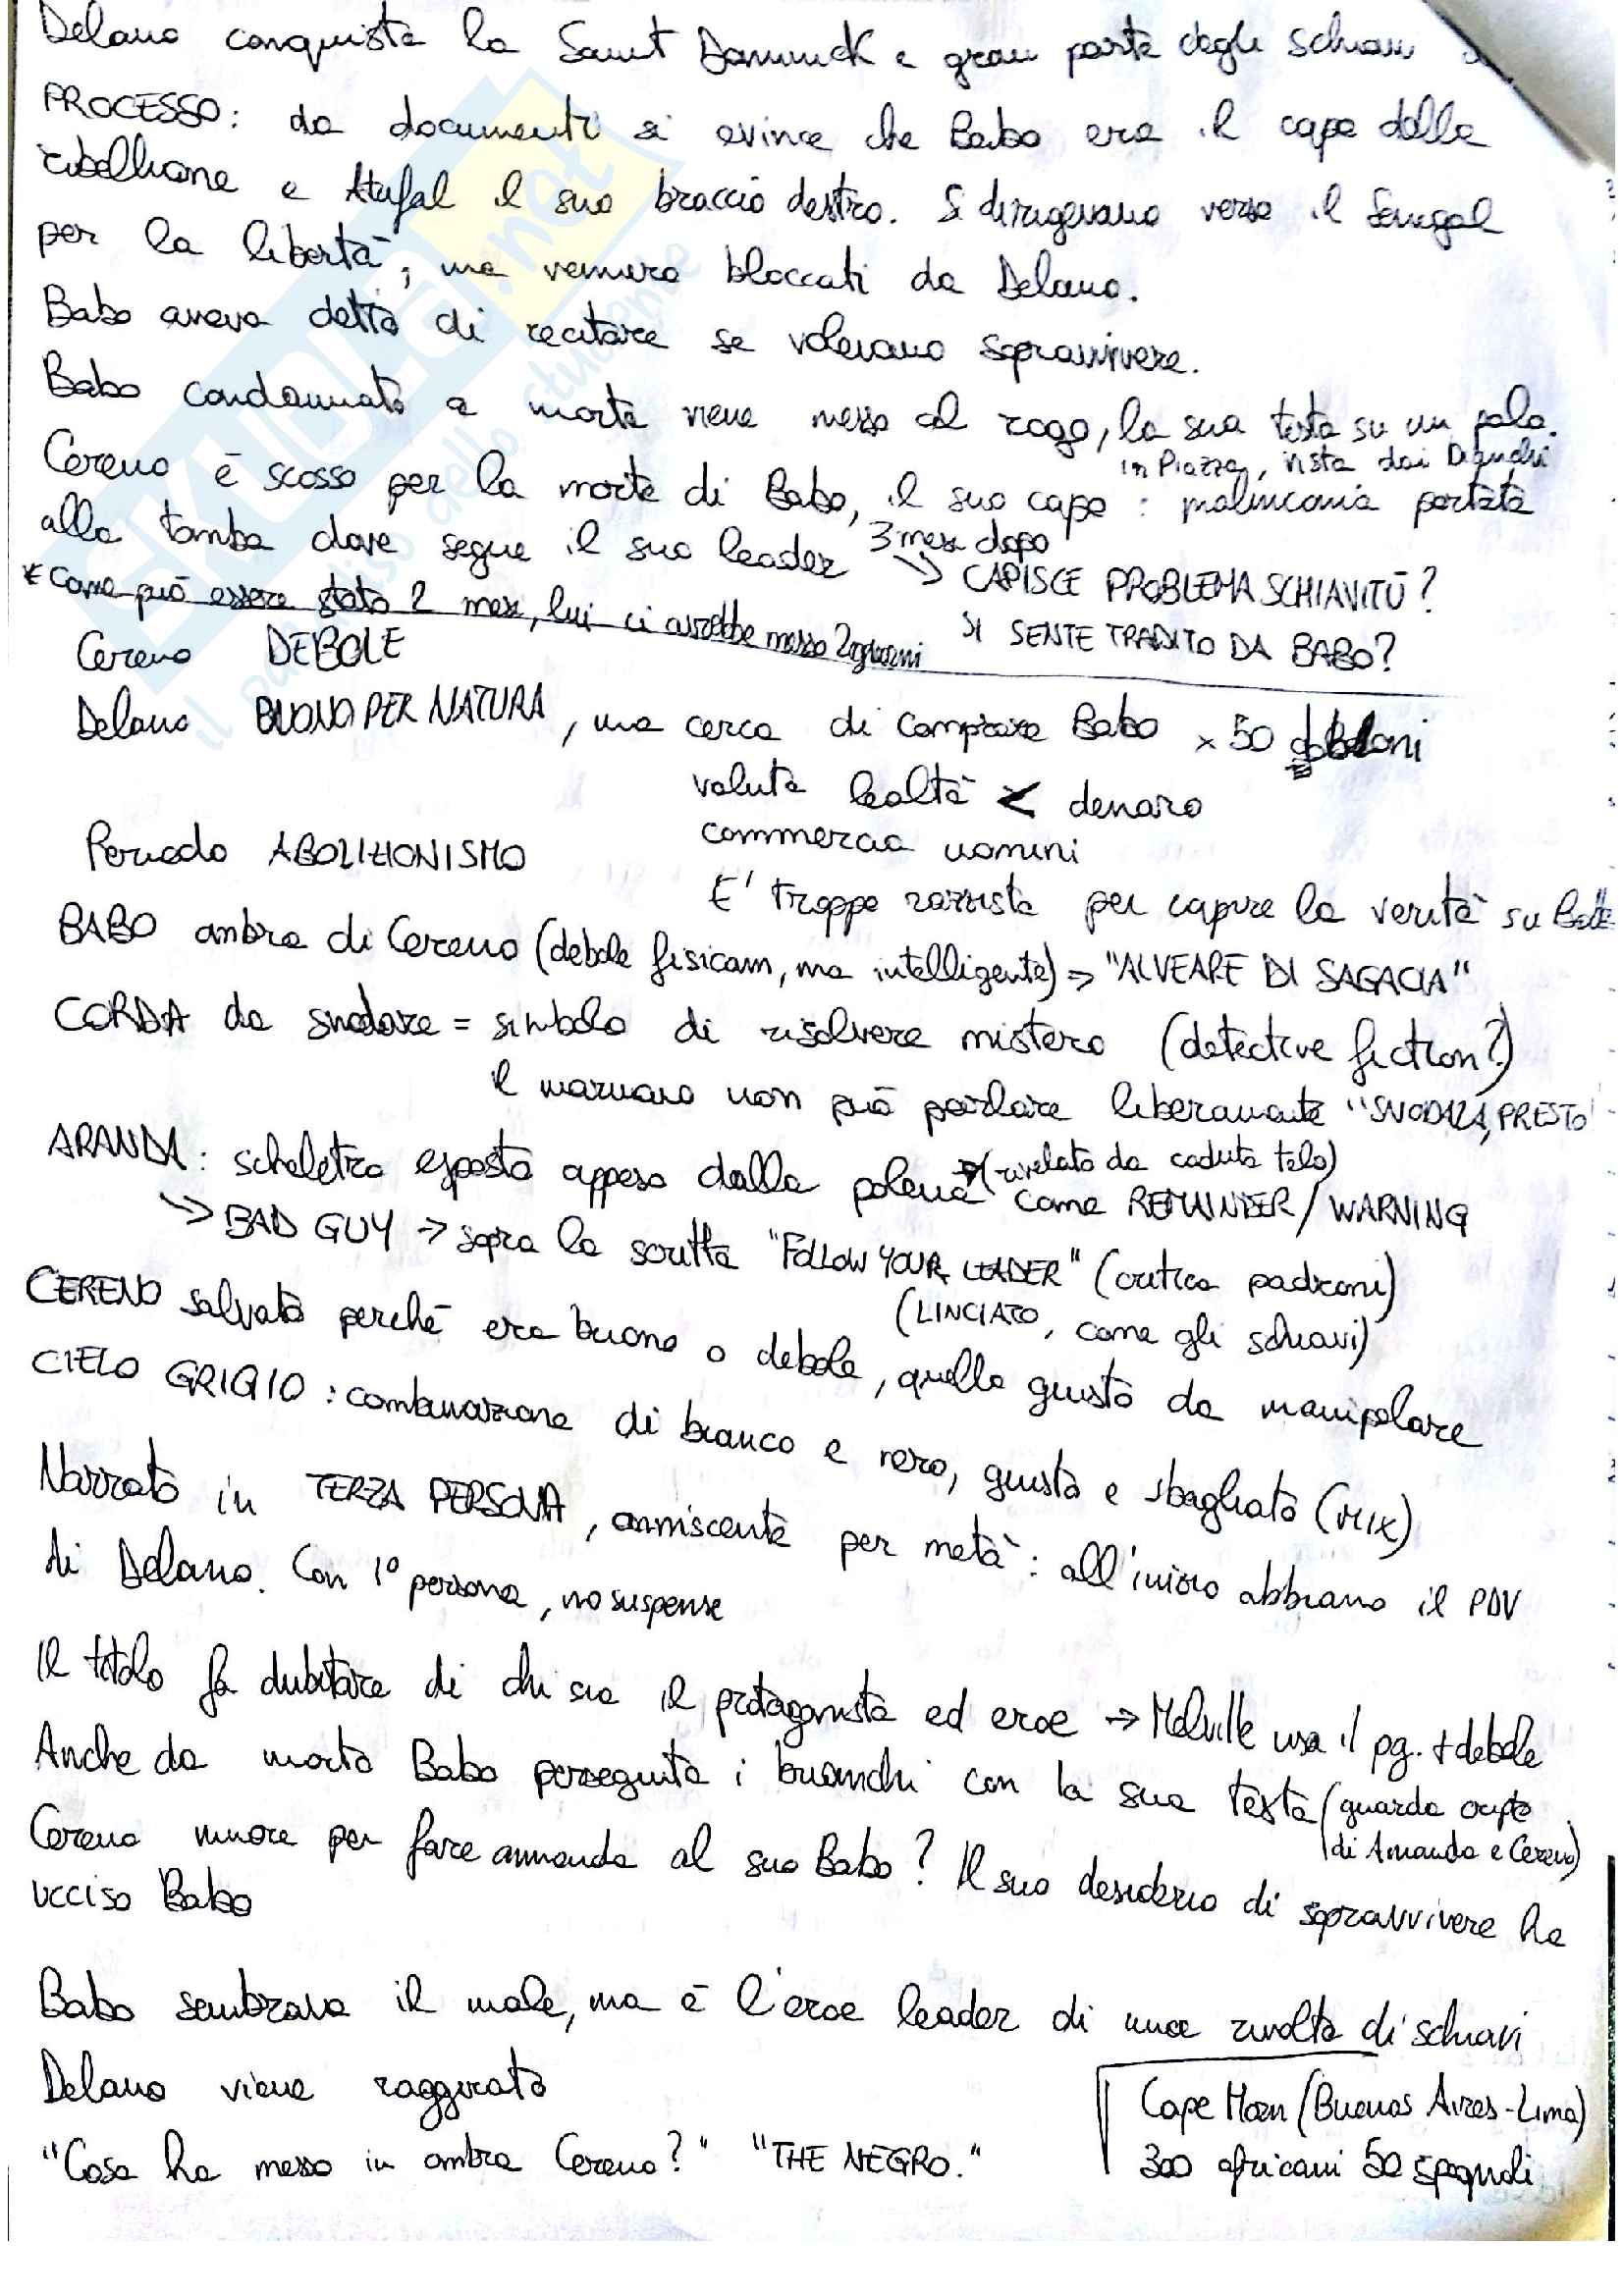 Delano conquista la Saint Dominick e gran parte degli schiavi
PROCESSO: da documenti si evince che Babo era il capo della
ribellione e Atufal il suo braccio destro. Si dirigevano verso il Senegal
per la libertà, ma vennero bloccati da Delano.
Babo aveva detto di recitare se volevano sopravvivere.
Babo condannato a morte viene messo al rogo, la sua testa su un palo
in Piazza, vista dai Bianchi
Cereno è scosso per la morte di Babo, il suo capo: malinconia portata
alla tomba dove segue il suo leader 3 mesi dopo
→ CAPISCE PROBLEMA SCHIAVITÙ?
* Come può essere stato 2 mesi, lui ci avrebbe messo 2 giorni
SI SENTE TRADITO DA BABO?
Cereno DEBOLE
Delano BUONO PER NATURA, ma cerca di comprare Babo x 50 dobloni
valuta lealtà < denaro
commercia uomini
Periodo ABOLIZIONISMO
E' troppo razzista per capire la verità su
BABO ombra di Cereno (debole fisicam, ma intelligente) => "ALVEARE DI SAGACIA"
CORDA da snodare = simbolo di risolvere mistero (detective fiction?)
il marinaio non può parlare liberamente "SNODALA, PRESTO"
ARANDA: scheletro esposto appeso dalla polena (rivelato da caduta telo) come REMAINDER / WARNING
→ BAD GUY → sopra la scritta "FOLLOW YOUR LEADER" (critica padroni)
(LINCIATO, come gli schiavi)
CERENO salvato perché era buono o debole, quello giusto da manipolare
CIELO GRIGIO: combinazione di bianco e nero, giusto e sbagliato (MIX)
Narrato in TERZA PERSONA, onniscente per metà: all'inizio abbiamo il PDV
di Delano. Con 1° persona, no suspense
Il titolo fa dubitare di chi sia il protagonista ed eroe → Melville usa il pg. + debole
Anche da morto Babo perseguita i bianchi con la sua testa (guarda cripta
di Amanda e Cereno)
Cereno muore per fare ammenda al suo Babo? Il suo desiderio di sopravvivere ha
ucciso Babo
Babo sembrava il male, ma è l'eroe leader di una rivolta di schiavi
Delano viene raggirato
Cape Horn (Buenos Aires-Lima)
"Cosa ha messo in ombra Cereno?" "THE NEGRO."
300 africani 50 spagnoli
SKUOLA.net
il paradiso dello studente